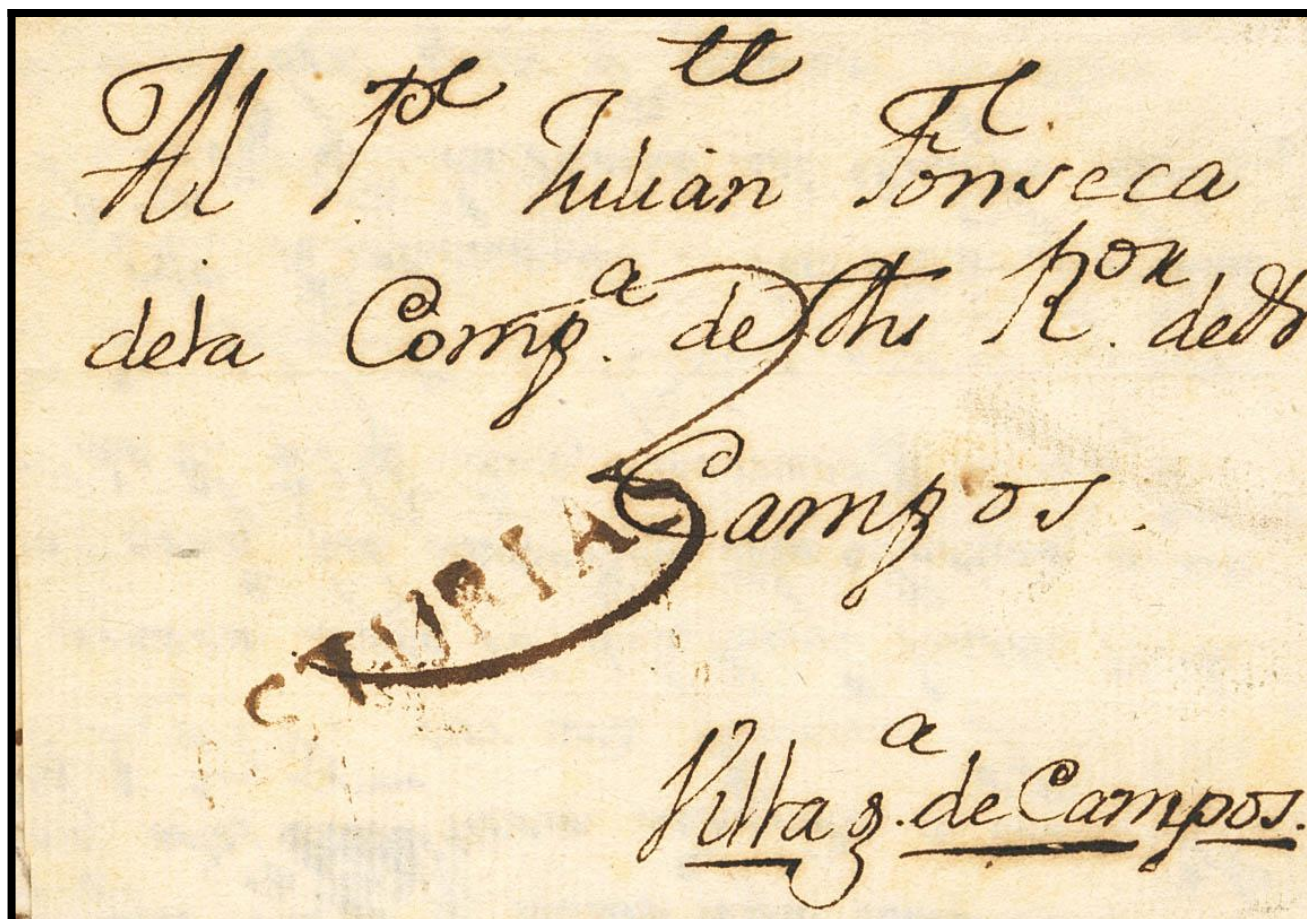 Al Pe Julian Fonseca
dela Compª. de Jhs Ror. de
Campos.
STURIAS
Villagª. de Campos.